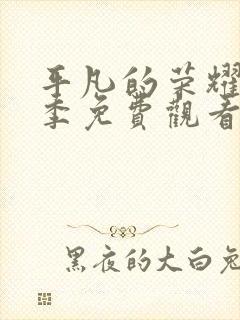 平凡的荣耀
季免費觀看
黑夜的大白兔